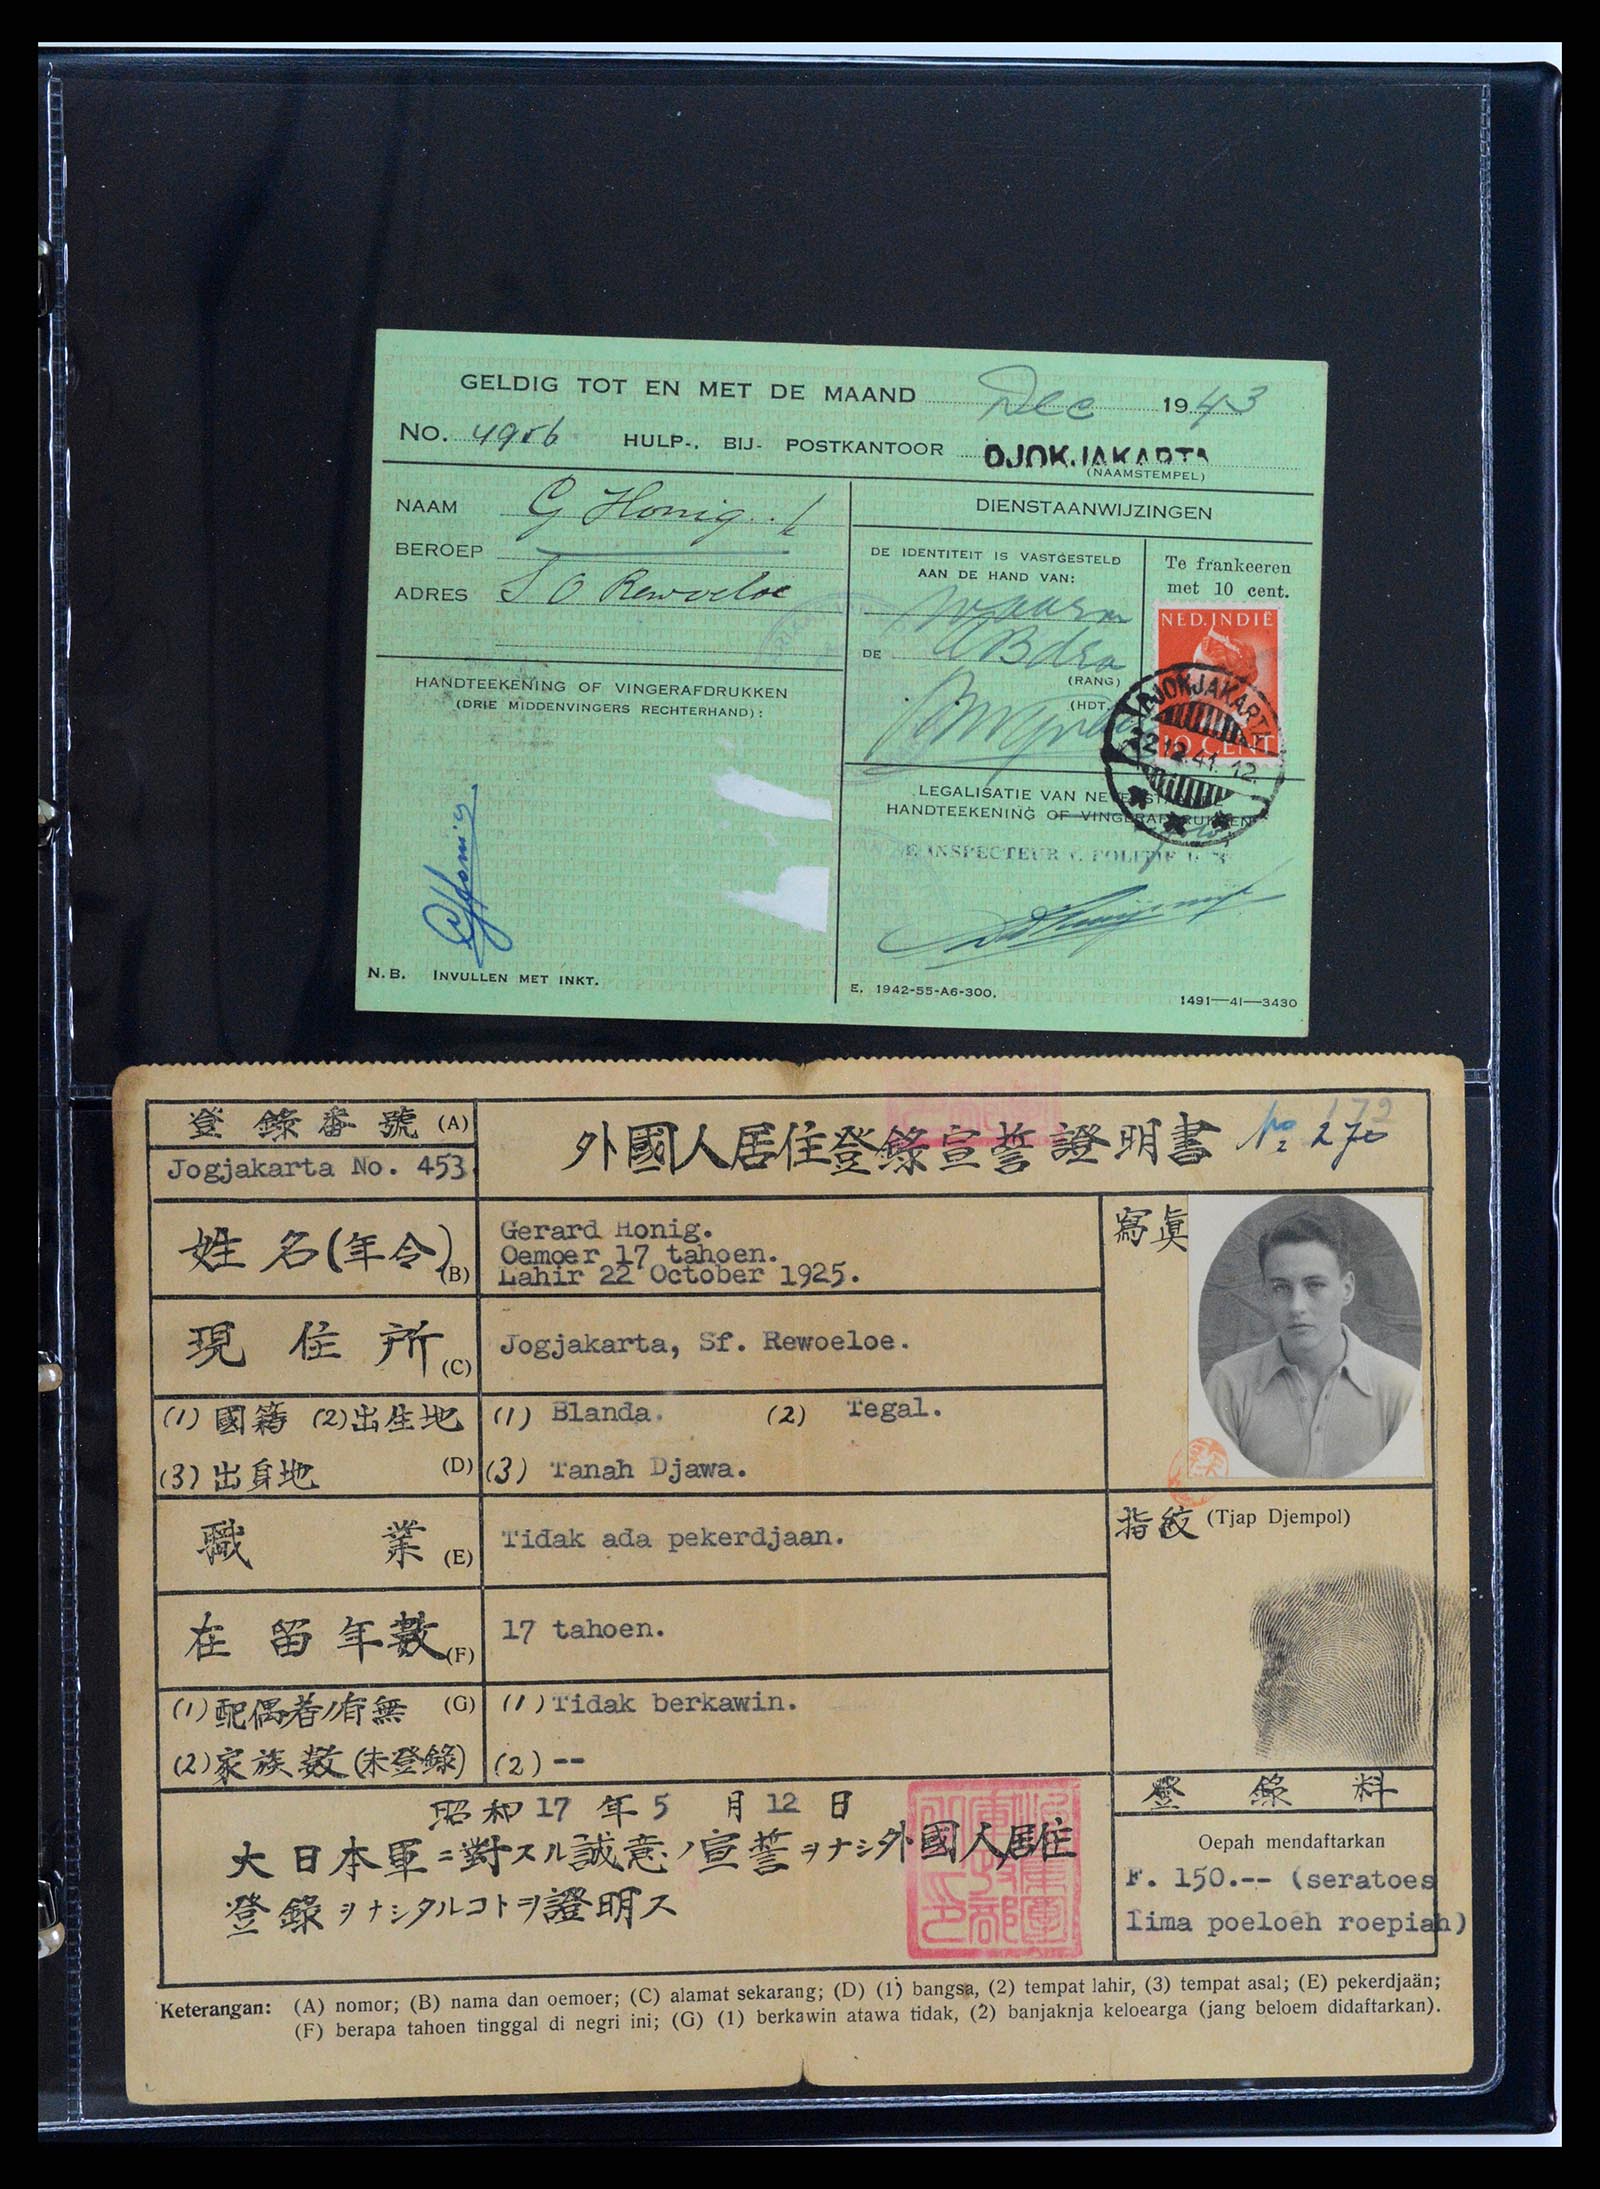 GELDIG TOT EN MET DE MAAND Dec 1943
NO. 4956 HULP-, BIJ- POSTKANTOOR DJOKJAKARTA
(NAAMSTEMPEL)
NAAM G Honig
BEROEP
ADRES S O Rewoeloe
HANDTEEKENING OF VINGERAFDRUKKEN
(DRIE MIDDENVINGERS RECHTERHAND):
GHonig
N.B. INVULLEN MET INKT.
DIENSTAANWIJZINGEN
DE IDENTITEIT IS VASTGESTELD
AAN DE HAND VAN:
DE
(RANG)
(HDT.
Te frankeeren
met 10 cent.
NED. INDIË
10 CENT
DJOKJAKARTA
22.12.41.12.
LEGALISATIE VAN NEVENSTAANDE
HANDTEEKENING OF VINGERAFDRUKKEN
DE INSPECTEUR V. POLITIE
E. 1942-55-A6-300.
1491—41—3430
登錄番號 (A)
Jogjakarta No. 453.
外國人居住登錄宣誓證明書 No 270
179
姓名(年令) (B)
Gerard Honig.
Oemoer 17 tahoen.
Lahir 22 October 1925.
寫眞
現住所 (C)
Jogjakarta, Sf. Rewoeloe.
(1) 國籍 (2) 出生地
(3) 出身地 (D)
(1) Blanda. (2) Tegal.
(3) Tanah Djawa.
職業 (E)
Tidak ada pekerdjaan.
指紋 (Tjap Djempol)
在留年數 (F)
17 tahoen.
(1) 配偶者ノ有無 (G)
(2) 家族数 (未登錄)
(1) Tidak berkawin.
(2) --
昭和 17 年 5 月 12 日
大日本軍ニ對スル誠意ノ宣誓ヲナシ外國人居住
登錄ヲナシタルコトヲ證明ス
登錄料
Oepah mendaftarkan
F. 150.-- (seratoes
lima poeloeh roepiah)
Keterangan: (A) nomor; (B) nama dan oemoer; (C) alamat sekarang; (D) (1) bangsa, (2) tempat lahir, (3) tempat asal; (E) pekerdjaän;
(F) berapa tahoen tinggal di negri ini; (G) (1) berkawin atawa tidak, (2) banjaknja keloearga (jang beloem didaftarkan).